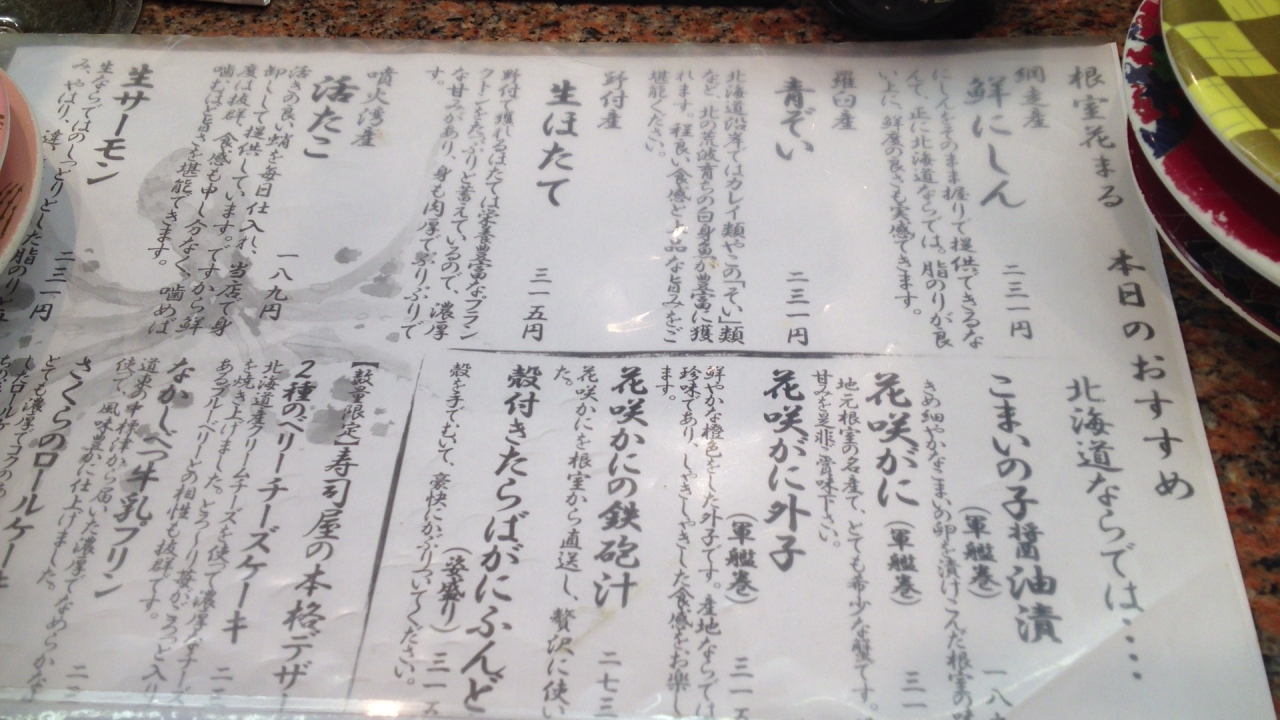 根室花まる 本日のおすすめ
北海道ならでは・・・
網走産
鮮にしん 二三一円
にしんをそのまま握りで提供できるな
んて、正に北海道ならでは。脂のりが良
い上に、鮮度の良さも実感できます。
羅臼産
青ぞい 二三一円
北海道沿岸ではカレイ類やこの「そい」類
など、北の荒波育ちの白身魚が豊富に獲
れます。程良い食感と上品な旨みをご
堪能ください。
野付産
生ほたて 三一五円
野付で獲れるほたては栄養豊富なプラン
クトンをたっぷりと蓄えているので、濃厚
な甘みがあり、身も肉厚で ぷりぷりで
す。
噴火湾産
活たこ 一八九円
活きの良い蛸を毎日仕入れ、当店で身
卸しして提供しています。ですから鮮
度は抜群、食感も申し分なく、噛めば
噛むほど旨さを堪能できます。
生サーモン 二三一円
生ならではのしっとりとした脂のり
み、やはり、違
こまいの子醤油漬
(軍艦巻) 一八
きめ細やかなこまいの卵を漬けこんだ根室の味
花咲がに(軍艦巻) 三一
地元根室の名産で、とても希少な蟹です。
甘みを是非ご賞味下さい。
花咲がに外子
(軍艦巻) 三一五
鮮やかな橙色をした外子です。産地ならでは
珍味であり、しゃきしゃきした食感をお楽し
ます。
花咲かにの鉄砲汁 二七三
花咲かにを根室から直送し、贅沢に使い
た。
殻付きたらばがにふんど
(姿盛り) 三一五
殻を手でもいで、豪快にかぶりついてください。
【数量限定】寿司屋の本格デザ
2種のベリーチーズケーキ 二
北海道産クリームチーズを使って濃厚なチーズ
を焼き上げました。とろっくり
あるブルーベリーとの相性も抜群です。
なかしべつ牛乳プリン
道東の中標津から届いた濃厚でなめらかな
使て、風味豊かに仕上げました。
さくらのロールケーキ
とても濃厚でコクのあ